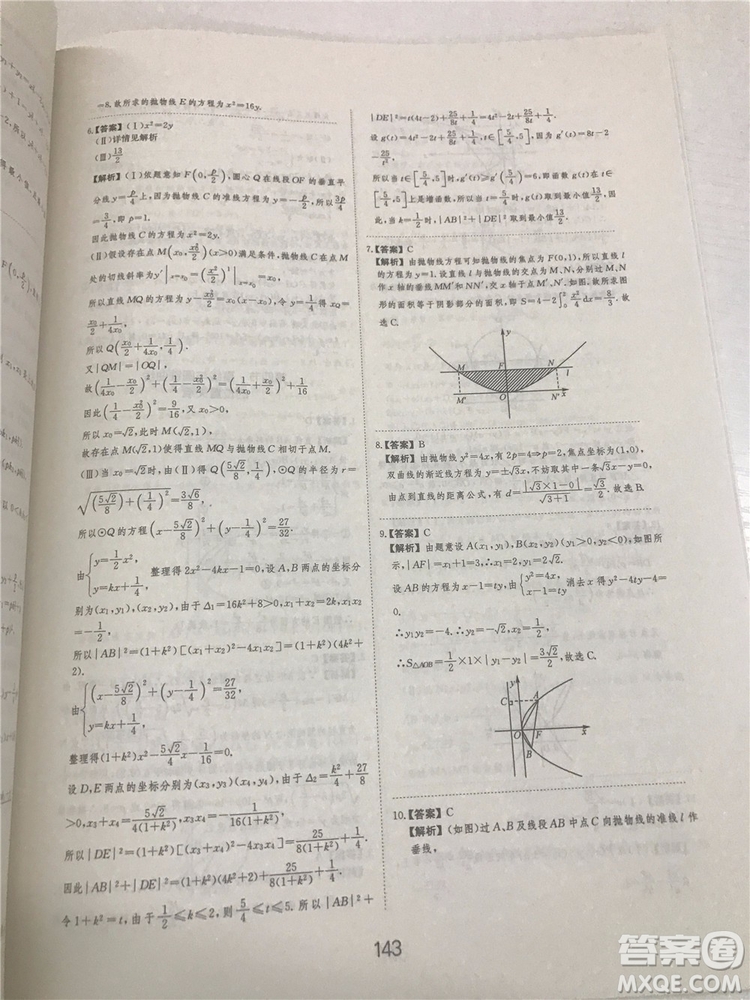 =8.故所求的抛物线E的方程为x²=16y.
6.【答案】(Ⅰ)x²=2y
(Ⅱ)详情见解析
(Ⅲ)13/2
【解析】(Ⅰ)依题意知F(0,p/2),圆心Q在线段OF的垂直平
分线y=p/4上,因为抛物线C的准线方程为y=-p/2,所以3p/4
=3/4,即p=1.
因此抛物线C的方程为x²=2y.
(Ⅱ)假设存在点M(x₀,x₀²/2)(x>0)满足条件,抛物线C在点M
处的切线斜率为y′|x=x₀=(x²/2)′|x=x₀=x₀.
所以直线MQ的方程为y-x₀²/2=x₀(x-x₀),令y=1/4得xQ=
x₀/2+1/4x₀.
所以Q(x₀/2+1/4x₀,1/4).
又|QM|=|OQ|,
故(1/4x₀-x₀/2)²+(1/4-x₀²/2)²=(1/4x₀+x₀/2)²+1/16
因此(1/4-x₀²/2)²=9/16,又x₀>0
所以x₀=√2,此时M(√2,1).
故存在点M(√2,1)使得直线MQ与抛物线C相切于点M.
(Ⅲ)当x₀=√2时,由(Ⅱ)得Q(5√2/8,1/4),⊙Q的半径为r=
√((5√2/8)²+(1/4)²)=3√6/8,
所以⊙Q的方程(x-5√2/8)²+(y-1/4)²=27/32.
由{y=1/2x², y=kx+1/4,整理得2x²-4kx-1=0.设A,B两点的坐标分
别为(x₁,y₁),(x₂,y₂),由于Δ₁=16k²+8>0,x₁+x₂=2k,x₁x₂=
-1/2,
所以|AB|²=(1+k²)[(x₁+x₂)²-4x₁x₂]=(1+k²)(4k²+
2).
由{(x-5√2/8)²+(y-1/4)²=27/32, y=kx+1/4,
整理得(1+k²)x²-5√2/4x-1/16=0.
设D,E两点的坐标分别为(x₃,y₃)(x₄,y₄),由于Δ₂=k²/4+27/8
>0,x₃+x₄=5√2/4(1+k²),x₃x₄=-1/16(1+k²).
所以|DE|²=(1+k²)[(x₃+x₄)²-4x₃x₄]=25/8(1+k²)+1/4
因此|AB|²+|DE|²=(1+k²)(4k²+2)+25/8(1+k²)+1/4.
令1+k²=t,由于1/2≤k≤2,则5/4≤t≤5.所以|AB|²+
|DE|²=t(4t-2)+25/8t+1/4=4t²-2t+25/8t+1/4.
设g(t)=4t²-2t+25/8t+1/4,t∈[5/4,5],因为g′(t)=8t-2
-25/8t²,
所以当t∈[5/4,5]时,g′(t)≥g′(5/4)=6>0,即函数g(t)在t∈
[5/4,5]是增函数,所以当t=5/4时,g(t)取到最小值13/2,因
此,当k=1/2时,|AB|²+|DE|²取到最小值13/2.
7.【答案】C
【解析】由抛物线方程可知抛物线的焦点为F(0,1),所以直线l
的方程为y=1.设直线l与抛物线的交点为M、N,分别过M,N
作x轴的垂线MM′和NN′,交x轴于点M′、N′,如图.故所求图
形的面积等于阴影部分的面积,即S=4-2∫₀²x²/4dx=8/3.故
选C.
y
M F N
l
M′ O N′ x
8.【答案】B
【解析】由抛物线y²=4x,有2p=4,p=2,焦点坐标为(1,0),
双曲线的渐近线方程为y=±√3x,不妨取其中一条√3x-y=0,
由点到直线的距离公式,有d=|√3×1-0|/√3+1=√3/2.故选B.
9.【答案】C
【解析】由题意设A(x₁,y₁),B(x₂,y₂)(y₁>0,y₂<0),如图所
示,|AF|=x₁+1=3,∴x₁=2,y₁=2√2.
设AB的方程为x-1=ty,由{y²=4x, x-1=ty消去x得y²-4ty-4=
0.
∴y₁y₂=-4.∴y₂=-√2,x₂=1/2,
∴S△AOB=1/2×1×|y₁-y₂|=3√2/2,故选C.
y
C A
O F x
B
10.【答案】C
【解析】(如图)过A、B及线段AB中点C向抛物线的准线l作
垂线,
143
答案圈
MXQE.COM